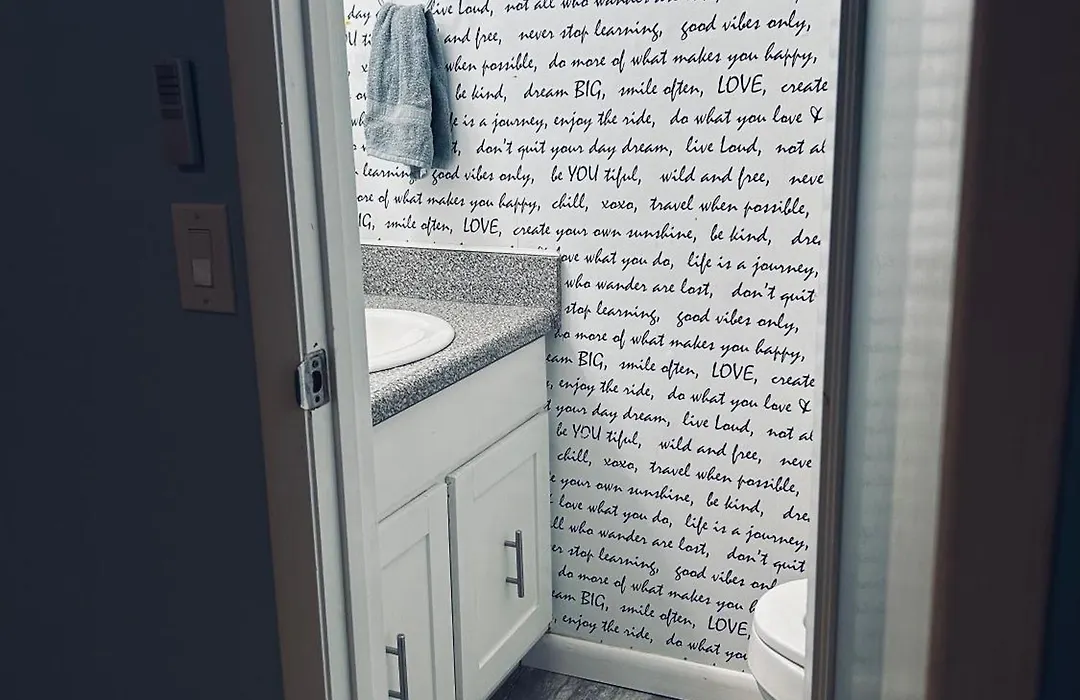 day live Loud, not all who wander are
and free, never stop learning, good vibes only,
when possible, do more of what makes you happy,
be kind, dream BIG, smile often, LOVE, create
is a journey, enjoy the ride, do what you love &
don't quit your day dream, live Loud, not al
learning, good vibes only, be YOU tiful, wild and free, neve
ore of what makes you happy, chill, xoxo, travel when possible,
IG, smile often, LOVE, create your own sunshine, be kind, dre
ove what you do, life is a journey,
who wander are lost, don't quit
stop learning, good vibes only,
do more of what makes you happy,
eam BIG, smile often, LOVE, create
, enjoy the ride, do what you love &
t your day dream, live Loud, not al
be YOU tiful, wild and free, neve
chill, xoxo, travel when possible,
e your own sunshine, be kind, dre
love what you do, life is a journey,
ll who wander are lost, don't quit
er stop learning, good vibes onl
do more of what makes you h
eam BIG, smile often, LOVE,
, enjoy the ride, do what you